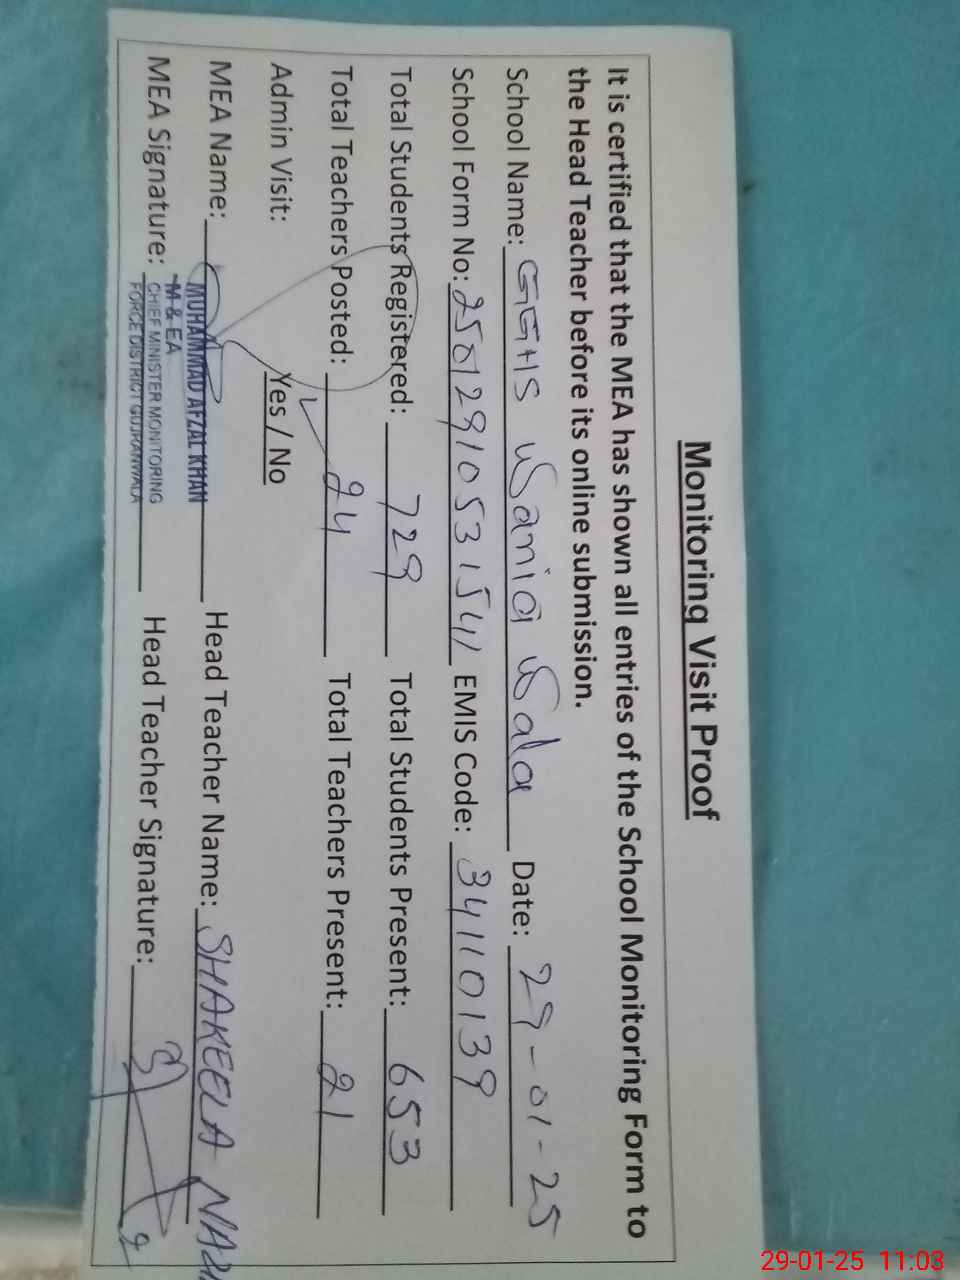 Monitoring Visit Proof
It is certified that the MEA has shown all entries of the School Monitoring Form to
the Head Teacher before its online submission.
School Name: GGHS Wania Wala Date: 29-01-25
School Form No: 25012910531541 EMIS Code: 34110139
Total Students Registered: 729 Total Students Present: 653
Total Teachers Posted: 24 Total Teachers Present: 21
Admin Visit: Yes / No
MEA Name: MUHAMMAD AFZAL KHAN Head Teacher Name: SHAKEELA
M & EA
MEA Signature: CHIEF MINISTER MONITORING Head Teacher Signature:
FORCE DISTRICT GUJRANWALA
29-01-25 11:03